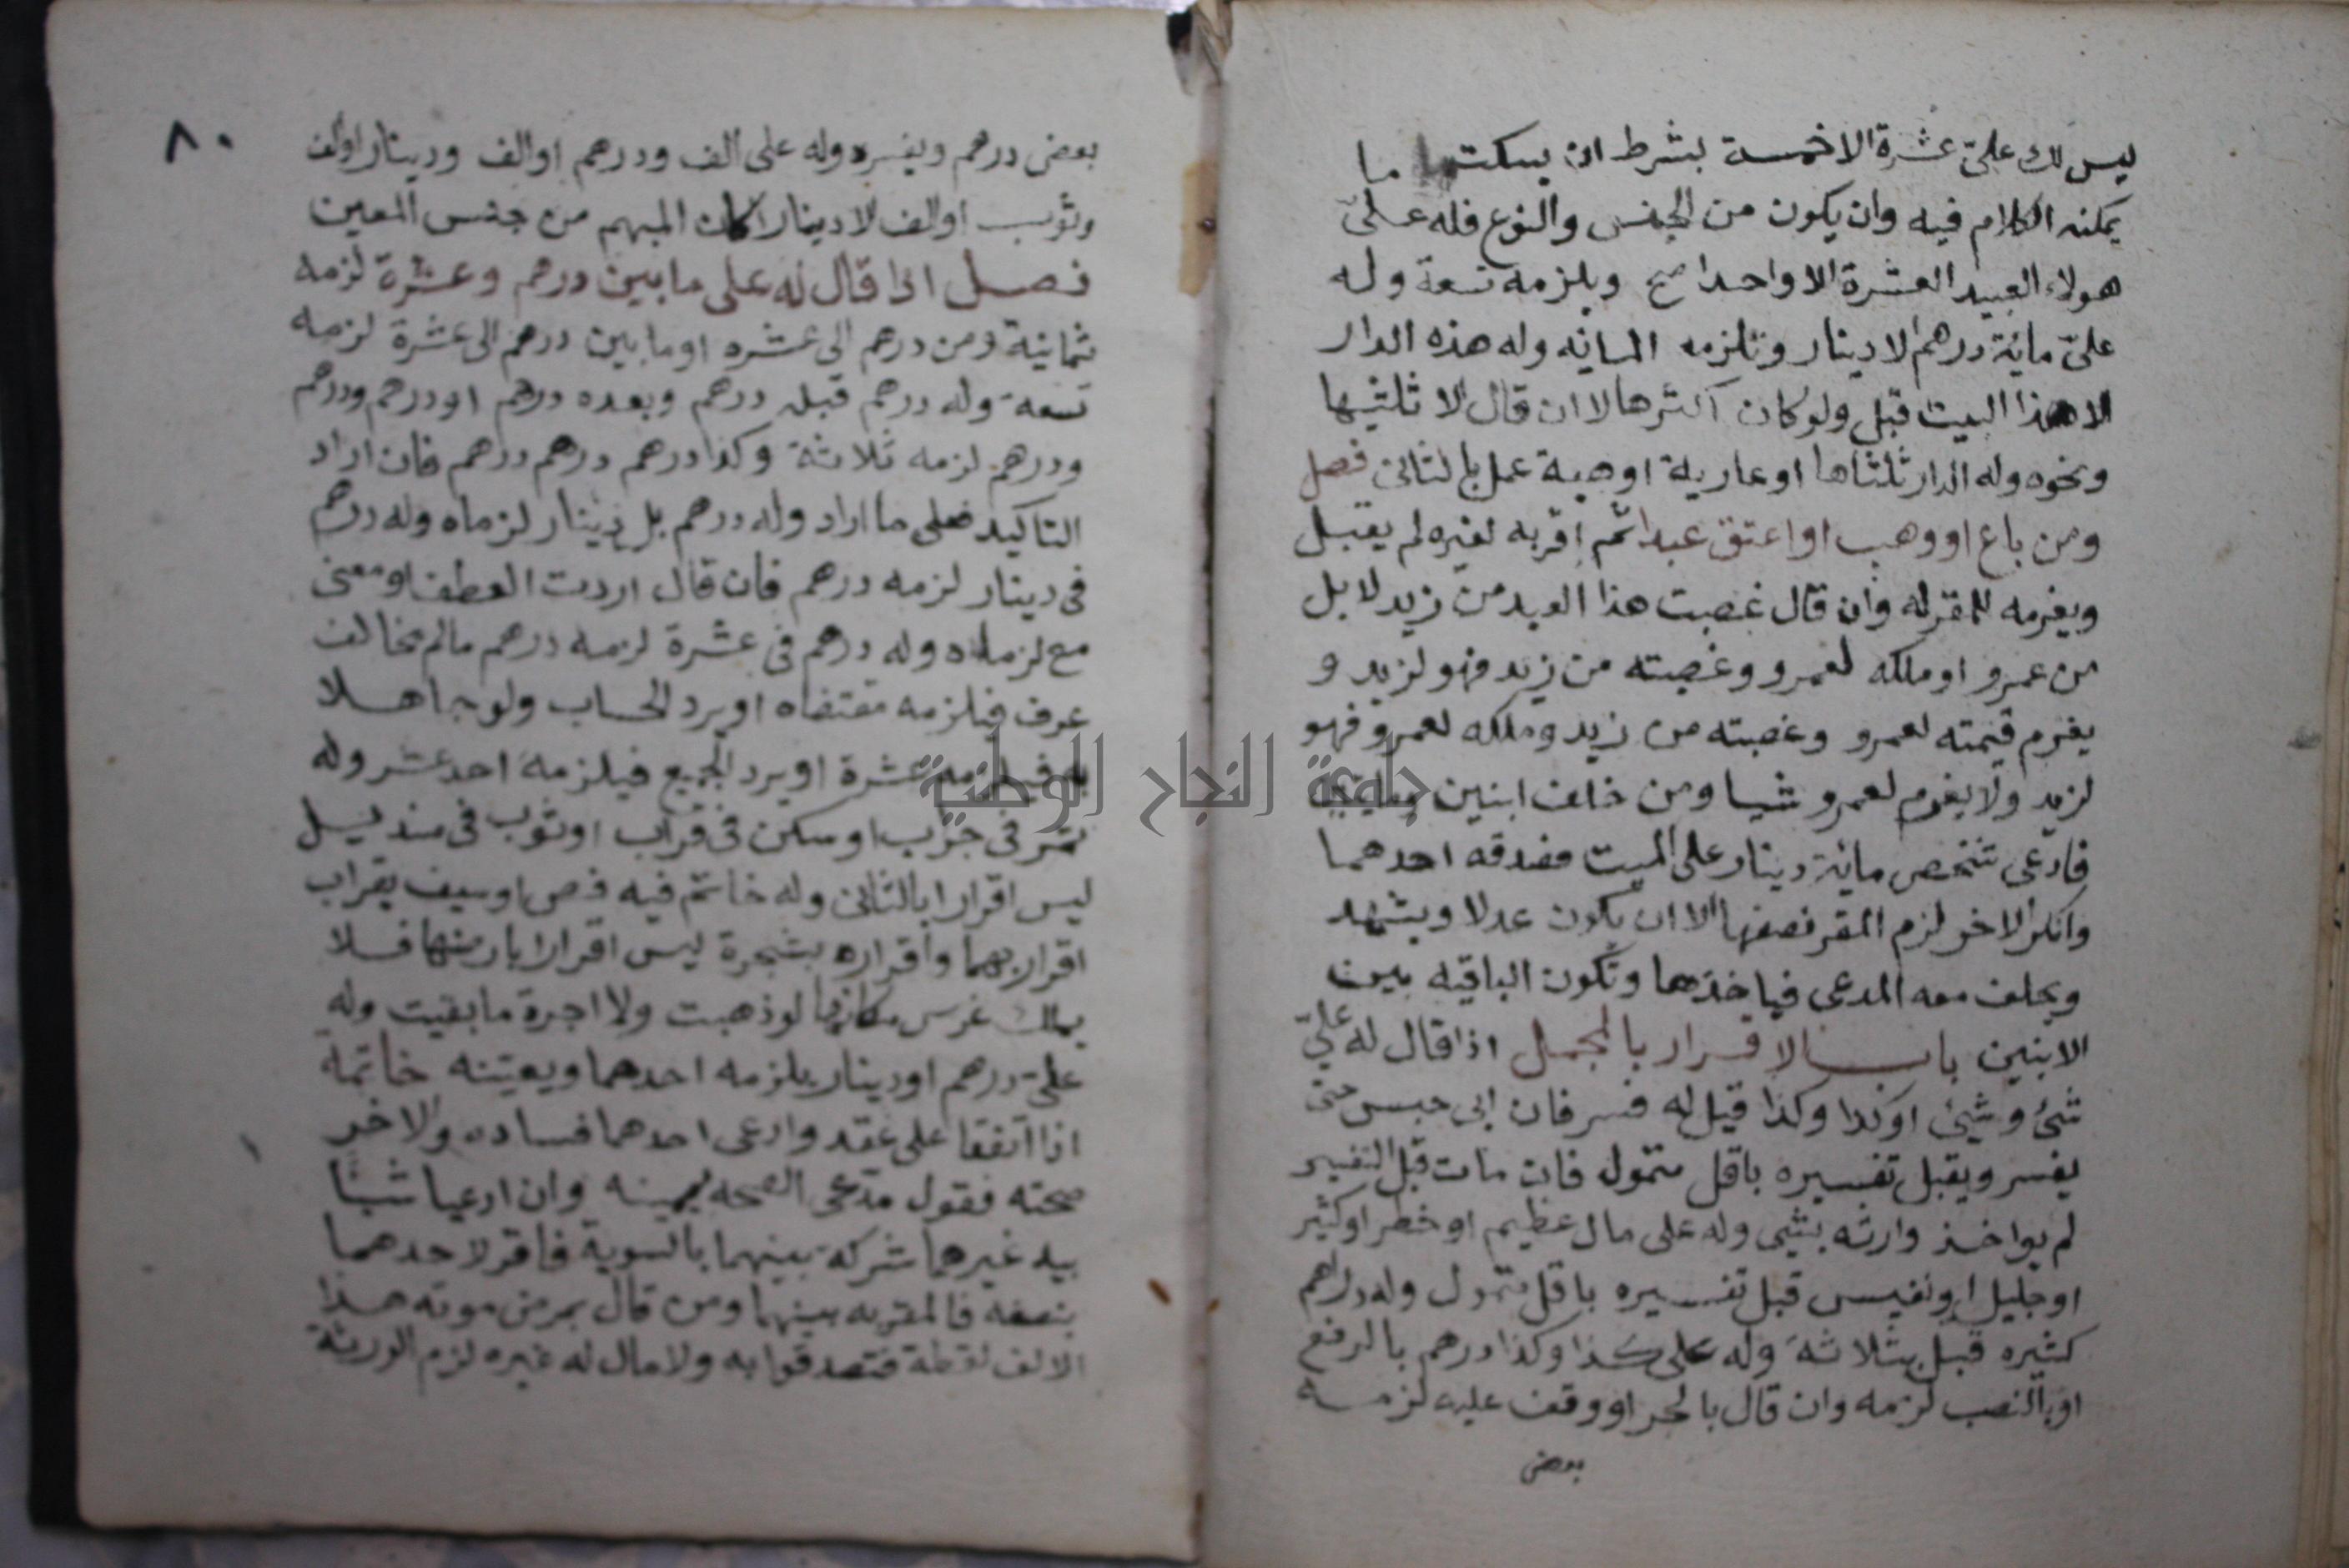 ليس لك علىّ عشرة الا خمسة بشرط ان يسكت ما
يمكنه الكلام فيه وان يكون من الجنس والنوع فله علىّ
هولاء العبيد العشرة الا واحدا صح ويلزمه تسعة وله
علىّ مائة درهم الا دينار وتلزمه المائه وله هذه الدار
الا هذا البيت قبل ولو كان اكثرها لا ان قال الا ثلثيها
ونحوه وله الدار ثلثاها او عارية او هبة عمل بالثانى فصل
ومن باع او وهب او اعتق عبدا ثم اقر به لغيره لم يقبل
ويغرمه للمقر له وان قال غصبت هذا العبد من زيد لا بل
من عمرو او ملكه لعمرو وغصبته من زيد فهو لزيد و
يغرم قيمته لعمرو وغصبته من زيد وملكه لعمرو فهو
لزيد ولا يغرم لعمرو شيا ومن خلف ابنين
فادعى شخص مائة دينار على الميت فصدقه احدهما
وانكر الاخر لزم المقر نصفها الا ان يكون عدلا ويشهد
ويحلف معه المدعى فياخذها وتكون الباقيه بين
الابنين باب الاقرار بالمجمل اذا قال له علىّ
شئ وشئ او كذا وكذا قيل له فسر فان ابى حبس حتى
يفسر ويقبل تفسيره باقل متمول فان مات قبل التفسير
لم يواخذ وارثه بشئ وله على مال عظيم او خطر او كثير
او جليل او نفيس قبل تفسيره باقل متمول وله دراهم
كثيره قبل بثلاثة وله على كذا وكذا درهم بالرفع
او بالنصب لزمه وان قال بالجر او وقف عليه لزمه
بعض
٨٠
بعض درهم ويفسره وله على الف ودرهم او الف ودينار او الف
وثوب او الف الا دينارا كان المبهم من جنس المعين
فصل اذا قال له على ما بين درهم وعشرة لزمه
ثمانية ومن درهم الى عشره او ما بين درهم الى عشرة لزمه
تسعة وله درهم قبله درهم وبعده درهم او درهم ودرهم
ودرهم لزمه ثلاثة وكذا درهم درهم درهم فان اراد
التاكيد فعلى ما اراد وله درهم بل دينار لزماه وله درهم
فى دينار لزمه درهم فان قال اردت العطف او معنى
مع لزماه وله درهم فى عشرة لزمه درهم مالم يخالف
عرف فيلزمه مقتضاه او يرد الحساب ولو جاهلا
به فيلزمه عشرة او يرد الجميع فيلزمه احد عشر وله
تمر فى جراب او سكين فى قراب او ثوب فى منديل
ليس اقرارا بالثانى وله خاتم فيه فص او سيف بقراب
اقرار بهما واقراره بشجرة ليس اقرارا بارضها فلا
يملك غرس مكانها لو ذهبت ولا اجرة ما بقيت وله
علىّ درهم او دينار يلزمه احدهما ويعينه خاتمة
اذا اتفقا على عقد وادعى احدهما فساده والاخر
صحته فقول مدعى الصحه بيمينه وان ادعيا شيئا
بيد غيرهما شركة بينهما بالسوية فاقر لاحدهما
بنصفه فالمقر به بينهما ومن قال بمرض موته هذا
الالف لقطة فتصدقوا به ولا مال له غيره لزم الورثة
جامعة النجاح الوطنية